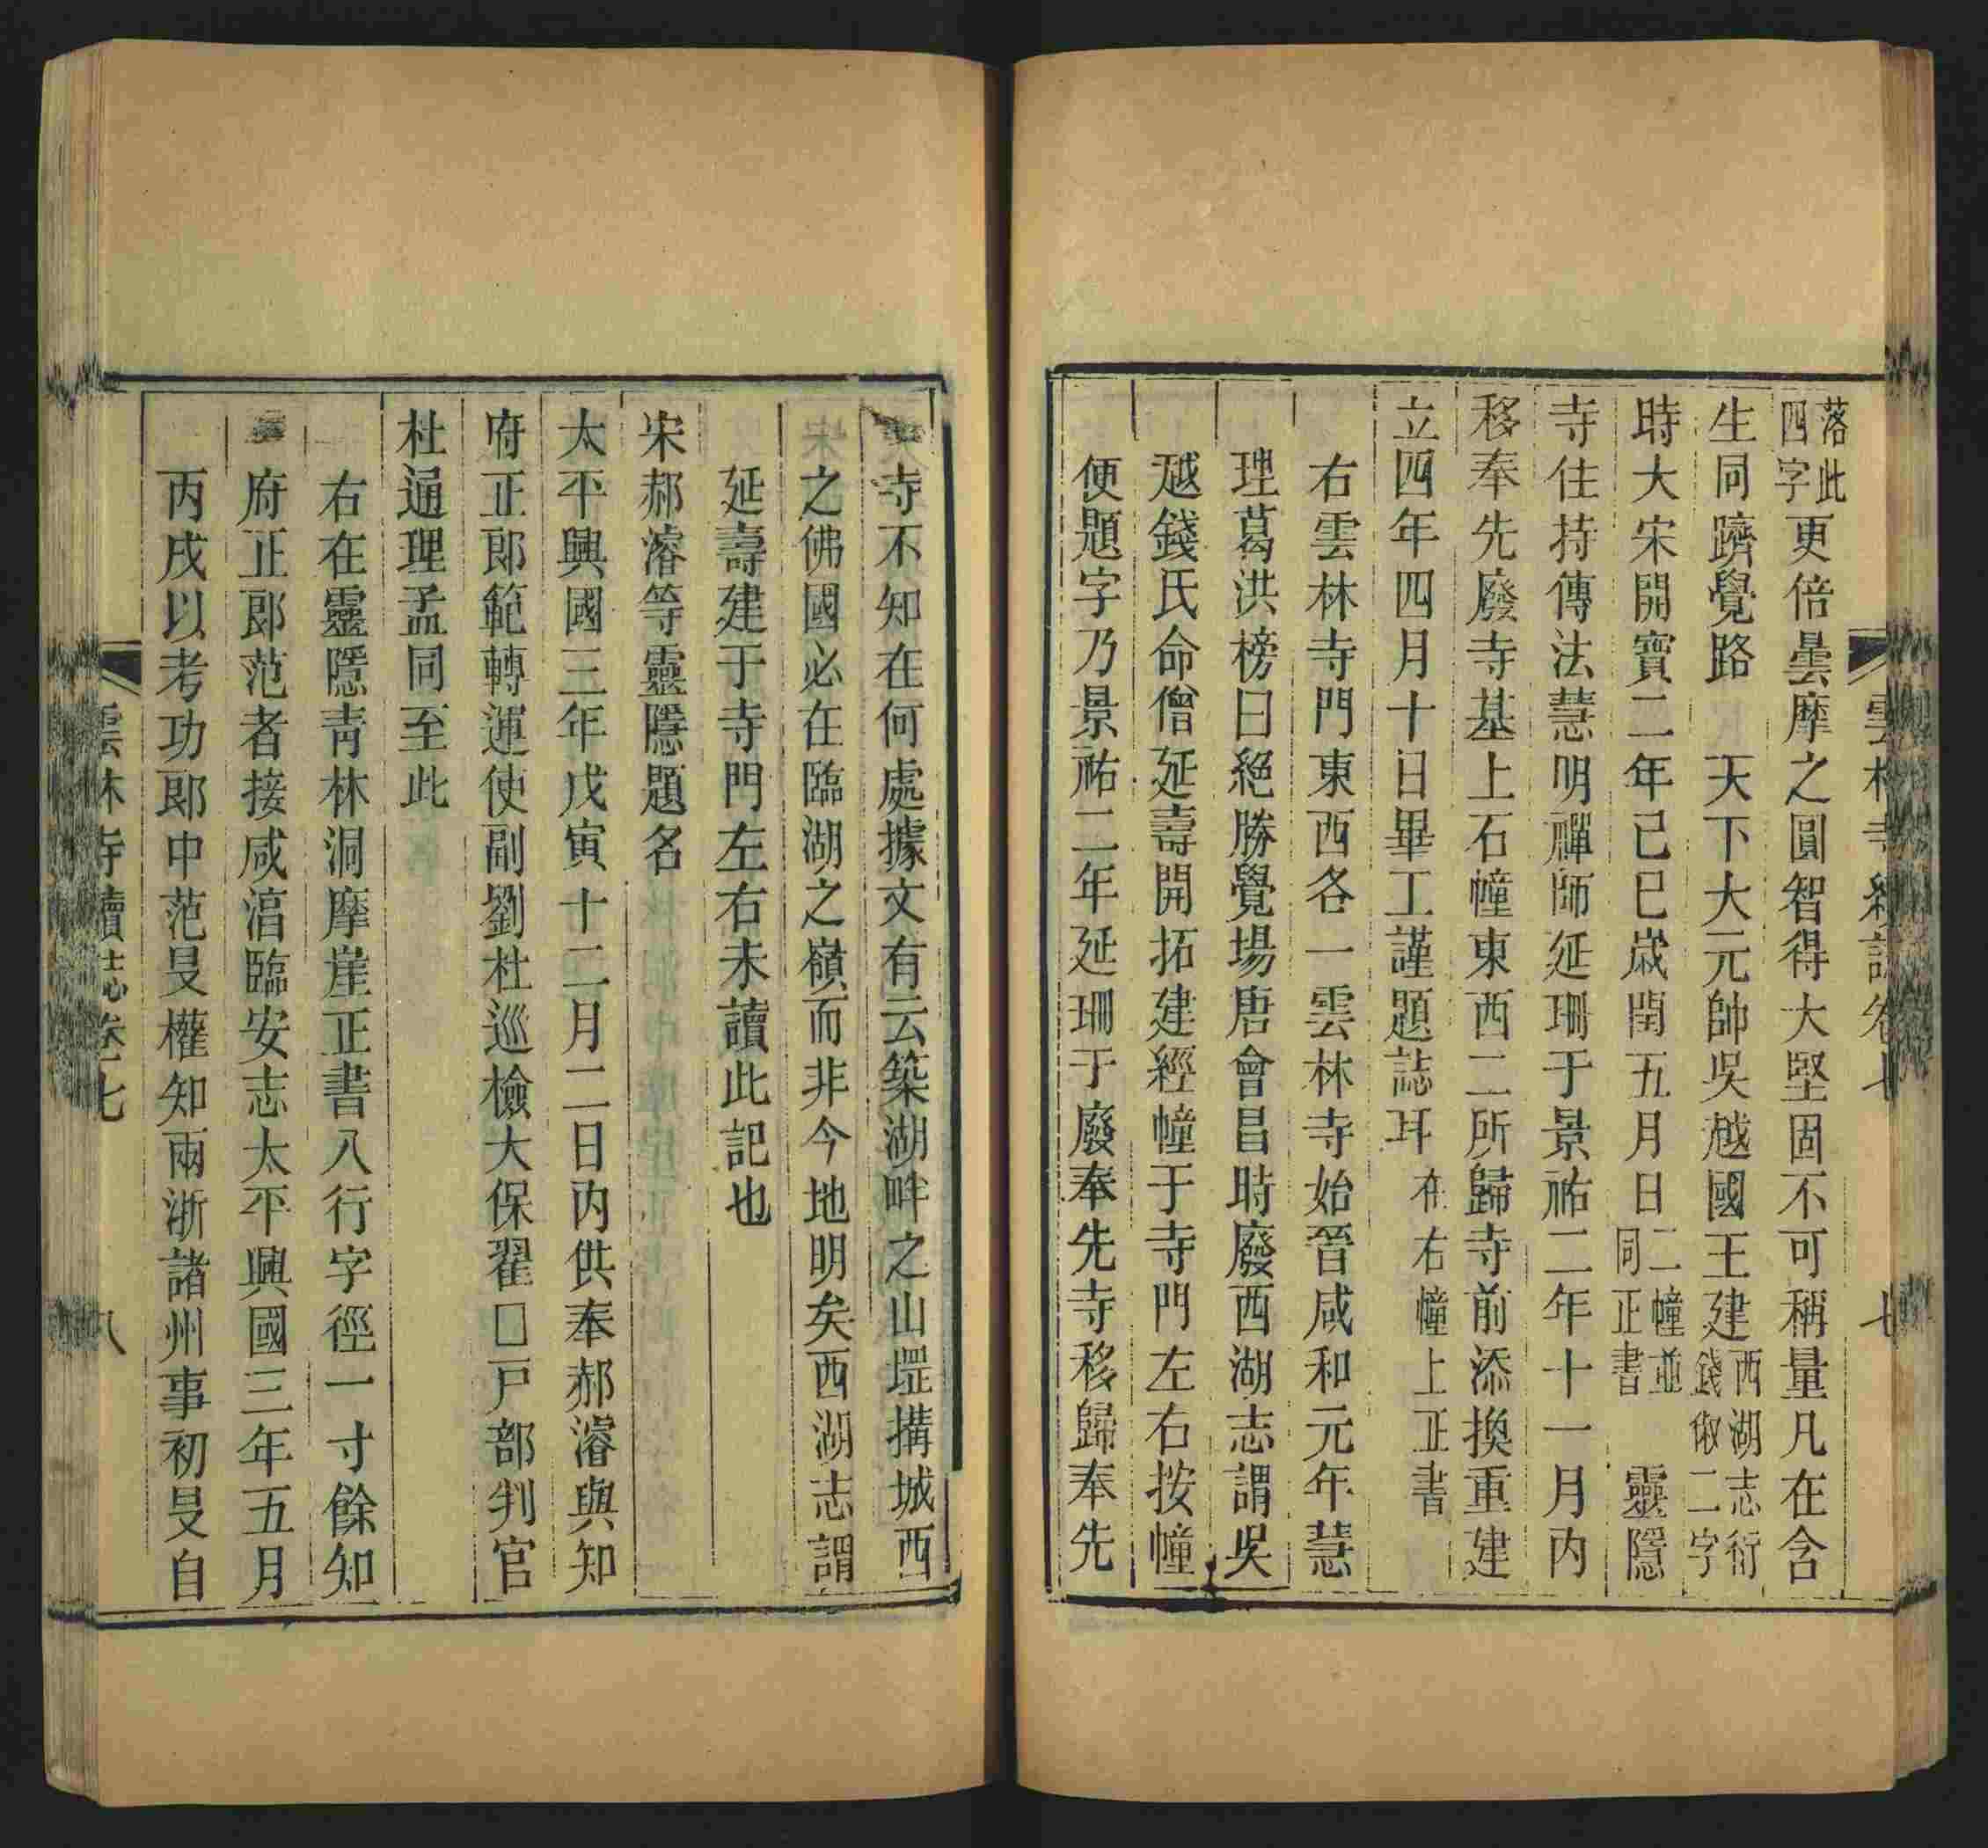 落此四字更倍曇摩之圓智得大堅固不可稱量凡在含
生同躋覺路 天下大元帥吳越國王建西湖志衍錢俶二字
時大宋開寶二年己巳歲閏五月日二幢並同正書 靈隱
寺住持傳法慧明禪師延珊于景祐二年十一月內
移奉先廢寺基上石幢東西二所歸寺前添換重建
立四年四月十日畢工謹題誌耳在右幢上正書
右雲林寺門東西各一雲林寺始晉咸和元年慧
理葛洪榜曰絕勝覺場唐會昌時廢西湖志謂吳
越錢氏命僧延壽開拓建經幢于寺門左右按幢
便題字乃景祐二年延珊于廢奉先寺移歸奉先
寺不知在何處據文有云築湖畔之山塸搆城西
之佛國必在臨湖之嶺而非今地明矣西湖志謂
延壽建于寺門左右未讀此記也
宋郝濬等靈隱題名
太平興國三年戊寅十二月二日內供奉郝濬與知
府正郎範轉運使副劉杜巡檢大保翟□戶部判官
杜通理孟同至此
右在靈隱青林洞摩崖正書八行字徑一寸餘知
府正郎范者接咸湻臨安志太平興國三年五月
丙戌以考功郎中范旻權知兩浙諸州事初旻自
雲林寺續誌卷七
八